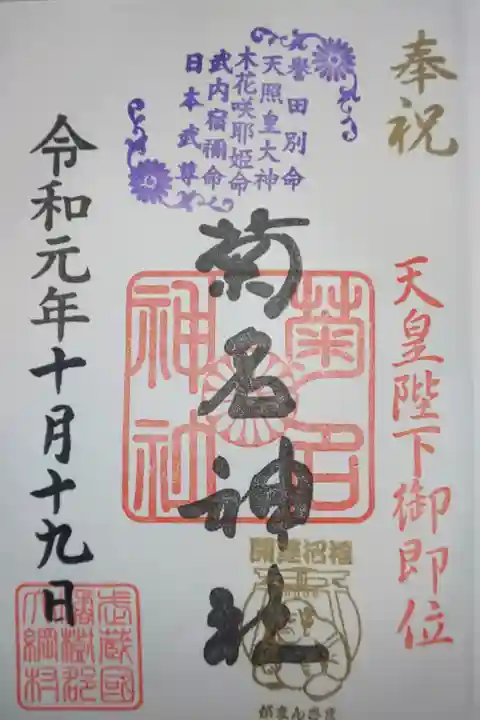 奉祝
天皇陛下御即位
誉田別命
天照皇大神
木花咲耶姫命
武内宿禰命
日本武尊
菊名神社
菊名
神社
開運招福
がまんさま
令和元年十月十九日
武蔵國
橘樹郡
大綱村